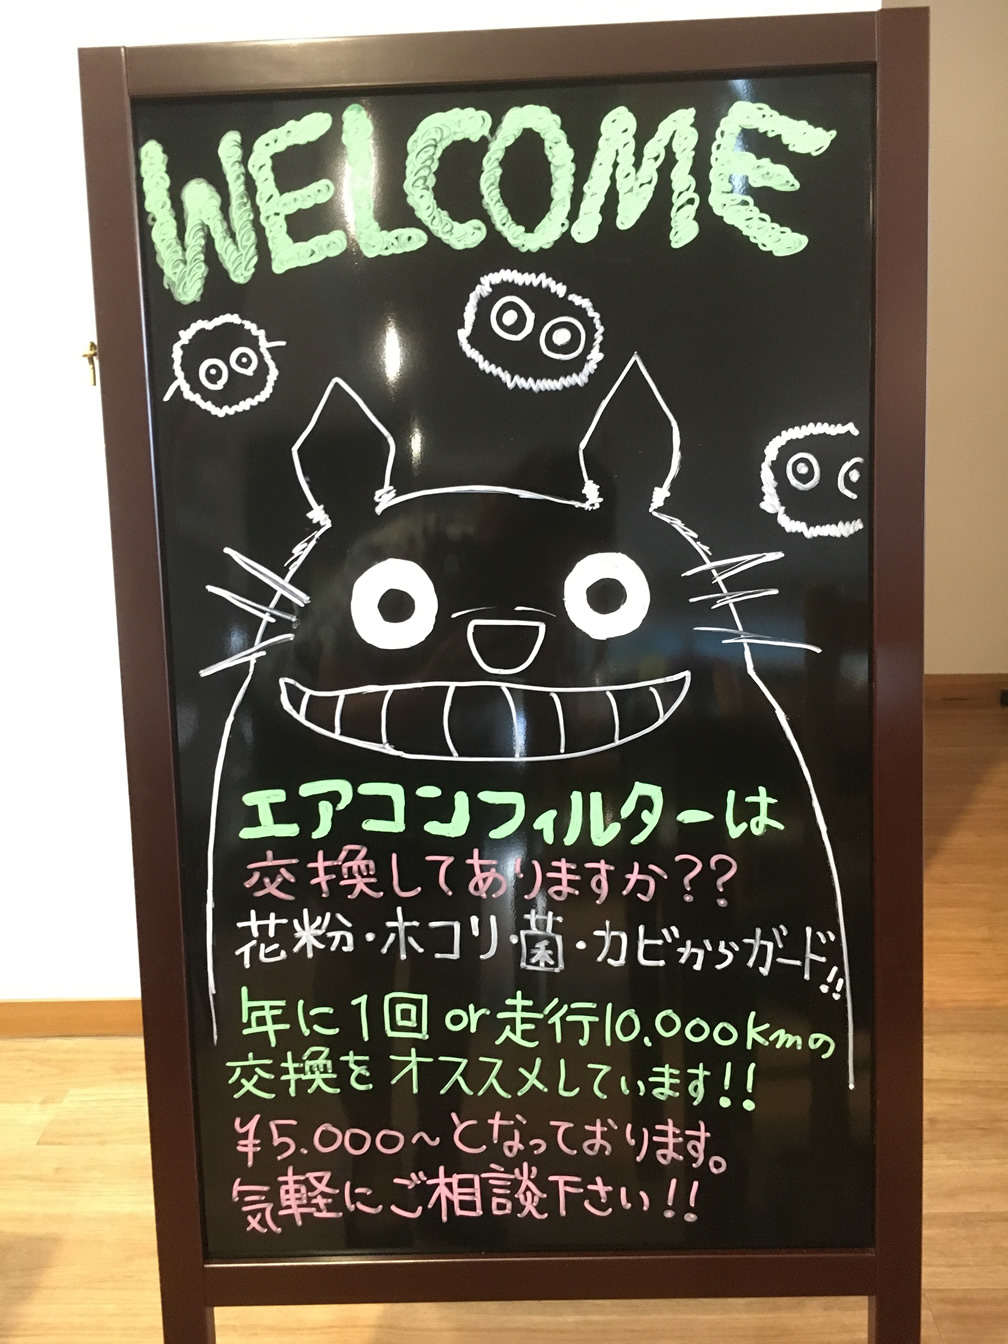 WELCOME
エアコンフィルターは
交換してありますか??
花粉・ホコリ・菌・カビからガード!!
年に1回 or 走行10.000kmの
交換を オススメしています!!
¥5.000～となっております。
気軽にご相談下さい!!